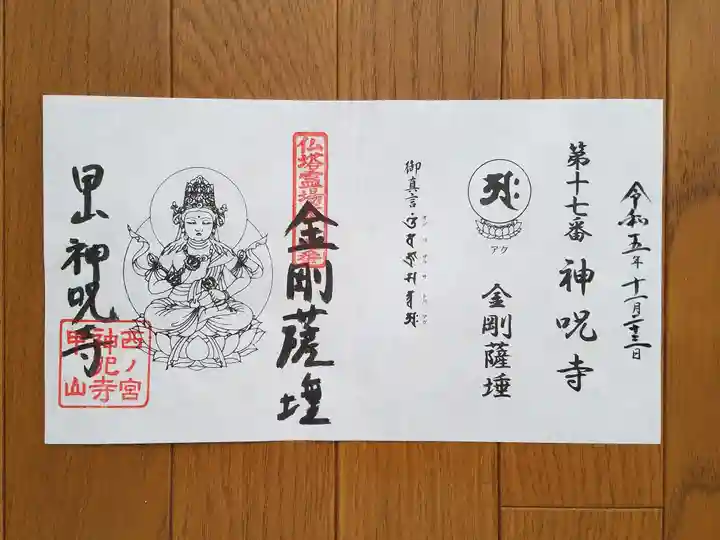 令和五年十一月二十三日
第十七番 神呪寺
アク
金剛薩埵
御真言
仏塔霊場
金剛薩埵
甲山 神呪寺
西ノ宮
神呪寺
甲山